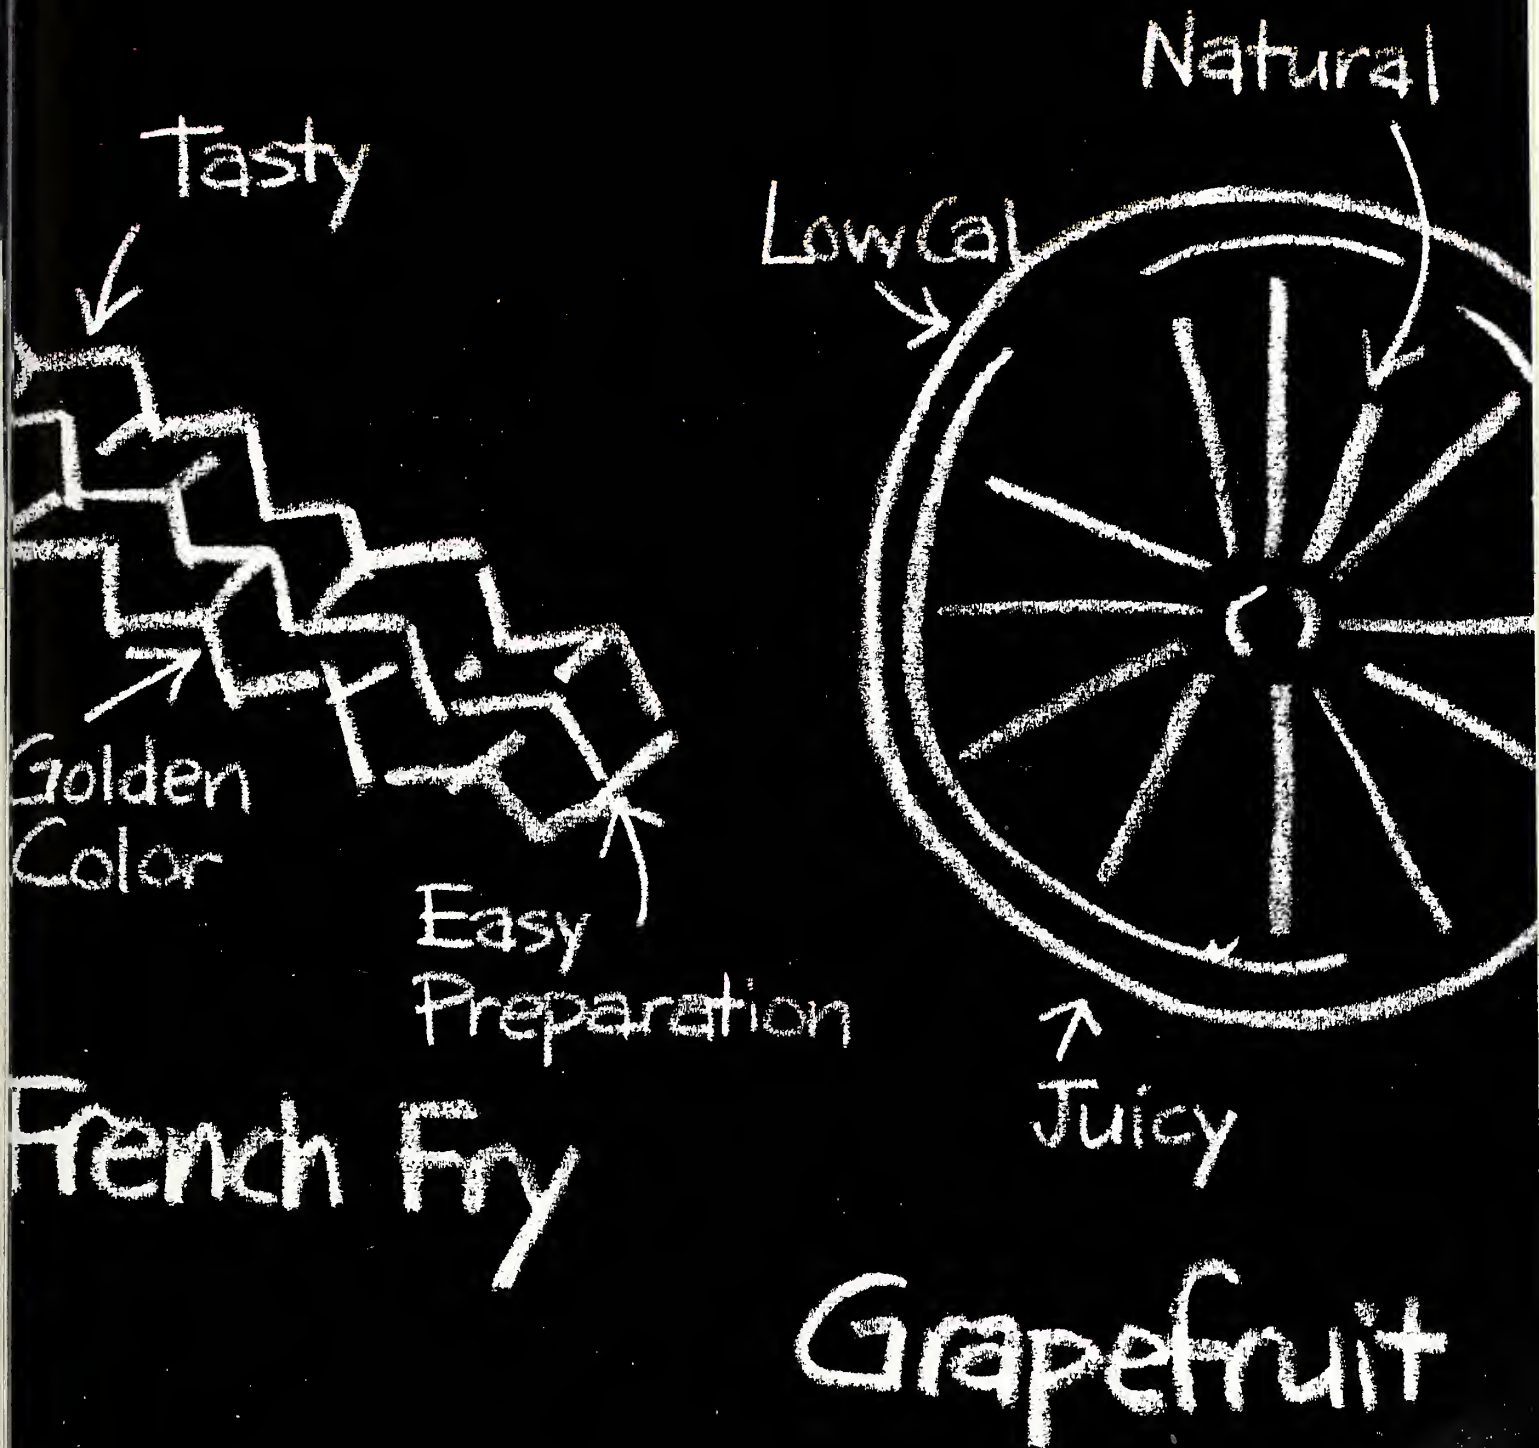 Tasty
Golden
Color
Easy
Preparation
French Fry
Natural
Low Cal
Juicy
Grapefruit